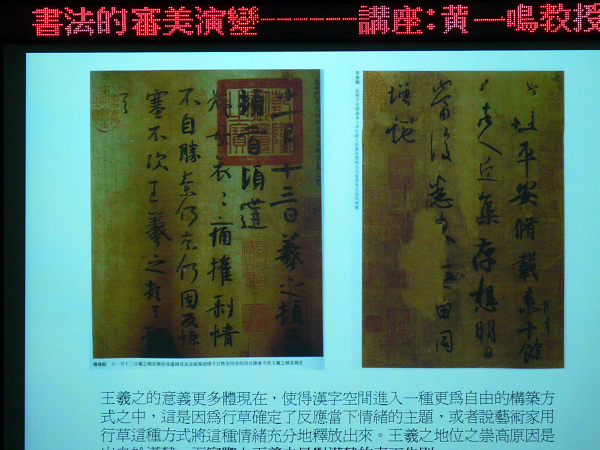 書法的審美演變------講座:黃一鳴教授
十一月十三日羲之頓
頓首頃遘
姨母哀哀痛摧剥情
不自勝奈何奈何因反慘
塞不次王羲之頓首
平安帖
平安脩載來十餘
諸人近集存想明日
當復悉來無由同
增慨
姨母帖
王羲之的意義更多體現在，使得漢字空間進入一種更爲自由的構築方
式之中，這是因爲行草確定了反應當下情緒的主題，或者說藝術家用
行草這種方式將這種情緒充分地釋放出來。王羲之地位之崇高原因是